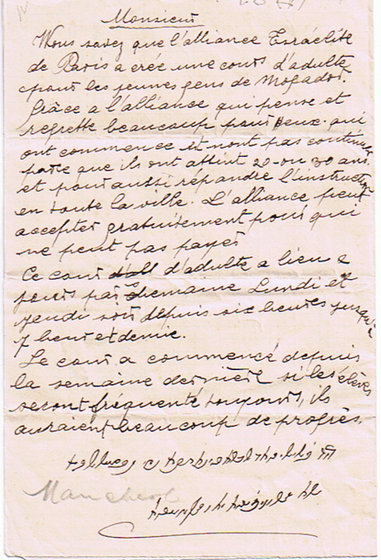 Monsieur
Vous savez que l'alliance Israélite
de Paris a crée une cours d'adulte
pour les jeunes gens de Mogador.
Grâce a l'alliance qui pense et
regrette beaucoup pour ceux qui
ont commencé et n'ont pas continuer
parce que ils ont attint 20 ou 30 ans
et pour aussi répandre l'instruction
en toute la ville. L'alliance peut
accepter gratuitement pour qui
ne peut pas payer
Ce cour d'adulte a lieu 2
jours par semaine Lundi et
jeudi soir depuis six heures jusqu'à
7 heur et demie.
Le cour a commencé depuis
la semaine dernière si les élèves
seront fréquenté toujours, ils
auraient beaucoup de progrès.